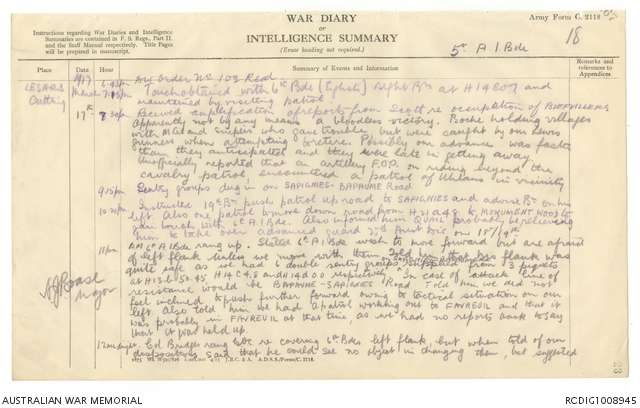 WAR DIARY
OF
INTELLIGENCE SUMMARY
(Erase heading not required.)
Army Form C. 2118
Instructions regarding War Diaries and Intelligence
Summaries are contained in F. S. Regs., Part II.
and the Staff Manual respectively. Title Pages
will be prepared in manuscript.
5th A I Bde
18
Place
Date
Hour
Summary of Events and Information
Remarks and
references to
Appendices
LESARS
Cutting
1917
March
17th
Order No 103 Recd
Touch obtained with 6th Bde right Bn at H14B07 and
maintained by visiting patrol
Received amplification of reports from Scott re occupation of
Apparently not by any means a bloodless victory. Boche holding villages
with MG and snipers who gave trouble but were caught by our Lewis
gunners when attempting to retire. Possibly our advance was faster
than they anticipated and they were late in getting away
Unofficially reported that an artillery F.O.P. on riding beyond the
cavalry patrol, encountered a patrol of Uhlans in vicinity
9.15pm Sentry groups dug in on SAPIGNIES - BAPAUME Road
Instructed 19th Bn push patrol up road to SAPIGNIES and advise Bn on his
left. Also one patrol to move down road from H21A48 to MONUMENT WOOD to
gain touch with 6th A I Bde. Also informed him probably be relieving
him to take over advanced guard on 18/19th
11pm 6th A I Bde rang up. Stated 6th A I Bde wish to move forward but are afraid
of left flank unless we move with them. Told him this flank was
quite safe as we had 6 double sentry groups supplied from 3 piquets
at H13 H14C48 and H14D00 respectively. In case of attack line of
resistance would be BAPAUME - SAPIGNIES Road. Told him we did not
feel inclined to push further forward owing to tactical situation on our
left. Also told him we had a patrol working out to FAVREUIL and that it
was probably in FAVREUIL at that time, as we had no reports back to say
that it was held up.
12 midnight Col Bridges rang re covering 6th Bdes left flank, but when told of our
dispositions said that he could see no object in changing them, but suggested
Major
23
AUSTRALIAN WAR MEMORIAL
RCDIG1008945